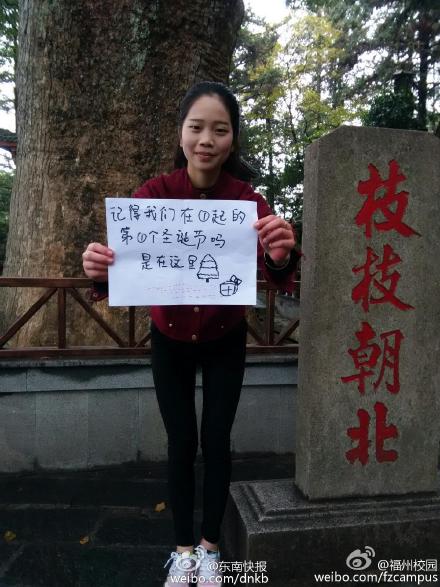 记得我们在①起的
第①个圣诞节吗
是在这里
枝枝朝北
@东南快报
weibo.com/dnkb
@福州校园
weibo.com/fzcampus